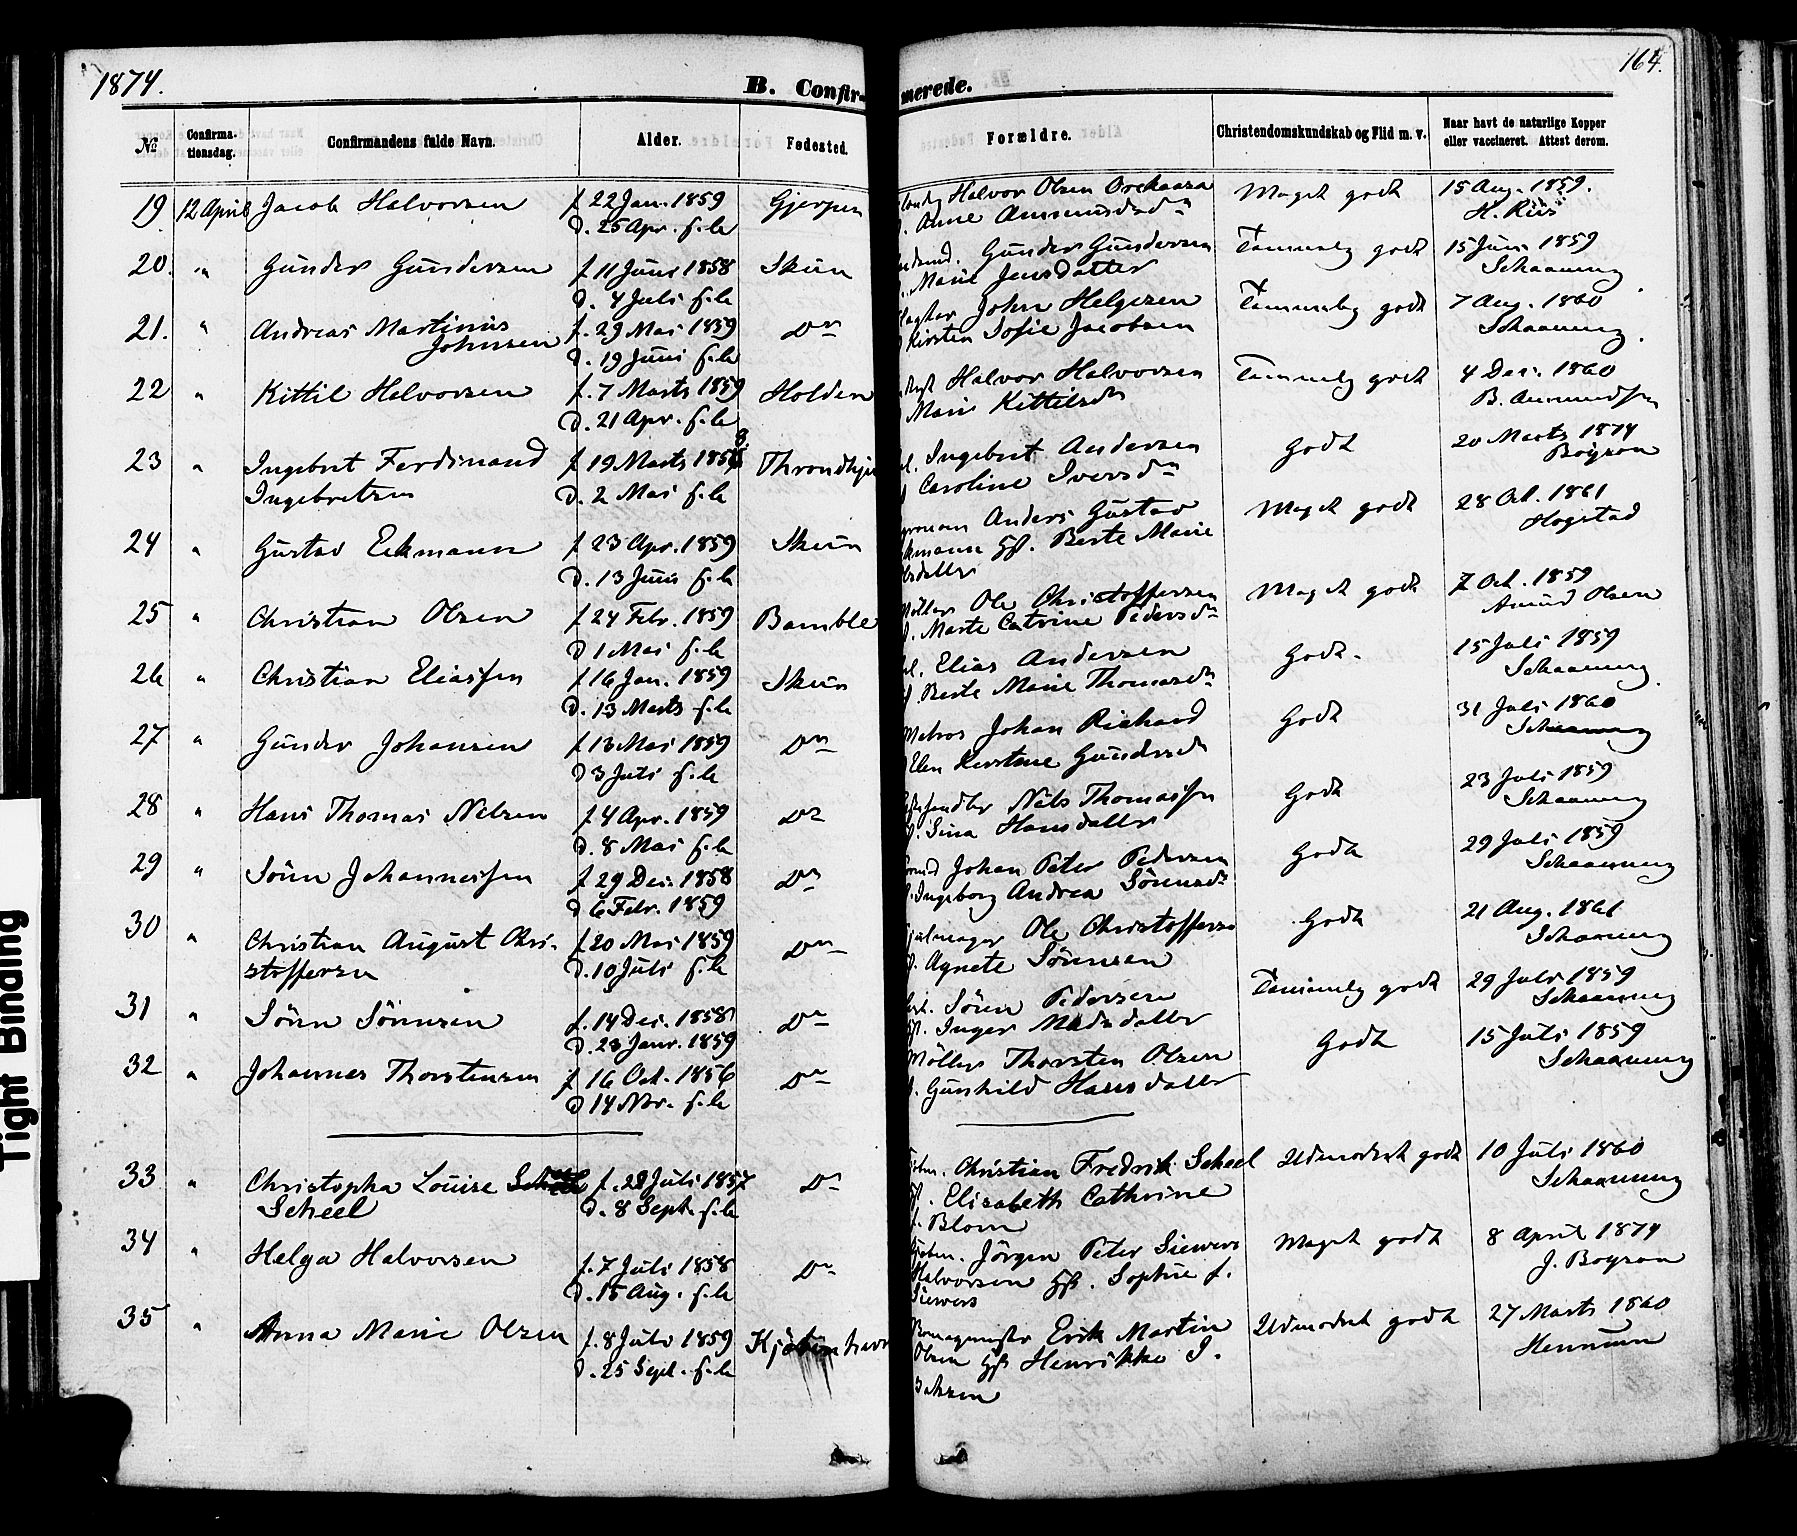 1874.
B. Confir-
merede.
164.
№
Confirma-
tionsdag.
Confirmandens fulde Navn.
Alder.
Fødested.
Forældre.
Christendomskundskab og Flid m. v.
Naar havt de naturlige Kopper
eller vaccineret. Attest derom.
19 12 April Jacob Halvorsen f. 22 Jan. 1859 Gjerpen Halvor Olsen Meget godt 15 Aug. 1859.
d. 25 Apr. s. A. Anne Ammundsdn H. Riis
20. " Gunder Gundersen f. 11 Juni 1858 Skien Gunder Gundersen Temmelig godt 15 Juni 1859
d. 4 Juli s. A. Marie Jensdatter Schaanning
21. " Andreas Martinius f. 29 Mai 1859 Do John Helgesen Temmelig godt 7 Aug. 1860
Johnsen d. 19 Juni s. A. Kirsten Sofie Jacobsen Schaanning
22 " Kittil Halvorsen f. 7 Marts 1859 Holden Halvor Halvorsen Temmelig godt 4 Dec. 1860
d. 21 Apr. s. A. Mari Kittilsdn B. Aamundsen
23 " Ingebret Ferdinand f. 19 Marts 1858 Throndhjem Ingebret Andersen Godt 20 Marts 1874
Ingebretsen d. 2 Mai s. A. Caroline Iversdn Boyson
24 " Gustav Eckmann f. 23 Apr. 1859 Skien Anders Gustav Meget godt 28 Oct. 1861
d. 13 Juni s. A. Eckmann Hst. Berte Marie Hogstad
25 " Christian Olsen f. 24 Febr. 1859 Bamble Møller Ole Christoffersen Meget godt 7 Oct. 1859
d. 1 Mai s. A. Marte Catrine Pedersdn Amund Olsen
26 " Christian Eliassen f. 16 Jan. 1859 Skien Elias Andersen Godt. 15 Juli 1859
d. 13 Marts s. A. Berte Marie Thomasdn Schaanning
27 " Gunder Johansen f. 13 Mai 1859 Do Matros Johan Richard Godt 31 Juli 1860
d. 3 Juli s. A. Elen Kirstine Gundersd Schaanning
28 " Hans Thomas Nilsen f. 4 Apr. 1859 Do Nils Thomassen Godt 23 Juli 1859
d. 8 Mai s. A. Sina Hansdatter Schaanning
29 " Søren Johannessen f. 29 Dec. 1858 Do Johan Peter Pedersen Godt 29 Juli 1859
d. 6 Febr. 1859 Ingeborg Andrea Sørensdn Schaanning
30 " Christian August Chri- f. 20 Mai 1859 Do Ole Christoffersen Godt 21 Aug. 1861
stoffersen d. 10 Juli s. A. Agnete Sørensen Schaanning
31 " Søren Sørensen f. 14 Dec. 1858 Do Søren Pedersen Temmelig godt 29 Juli 1859
d. 23 Janr. 1859 Hst. Inger Madsdatter Schaanning
32 " Johannes Thorstensen f. 16 Oct. 1856 Do Møller Thorsten Olsen Godt 15 Juli 1859
d. 14 Nov. s. A. Gunhild Hansdatter Schaanning
33 " Christopha Louise f. 22 Juli 1857 Do Christian Fredrik Scheel Udmerket godt 10 Juli 1860
Scheel d. 8 Sept. s. A. Elisabeth Cathrine Schaanning
f. Blom
34 " Helga Halvorsen f. 7 Juli 1858 Do Jörgen Peter Siewers Meget godt 8 April 1874
d. 15 Aug. s. A. Halvorsen Hst. Sophie f. J. Boyson
Siewers
35 " Anna Marie Olsen f. 8 Juli 1859 Kjøbenhavn Erik Martin Udmerket godt 27 Marts 1860
d. 25 Sept. s. A. Olsen Hst Henrikke I. Hennum
Tight Binding